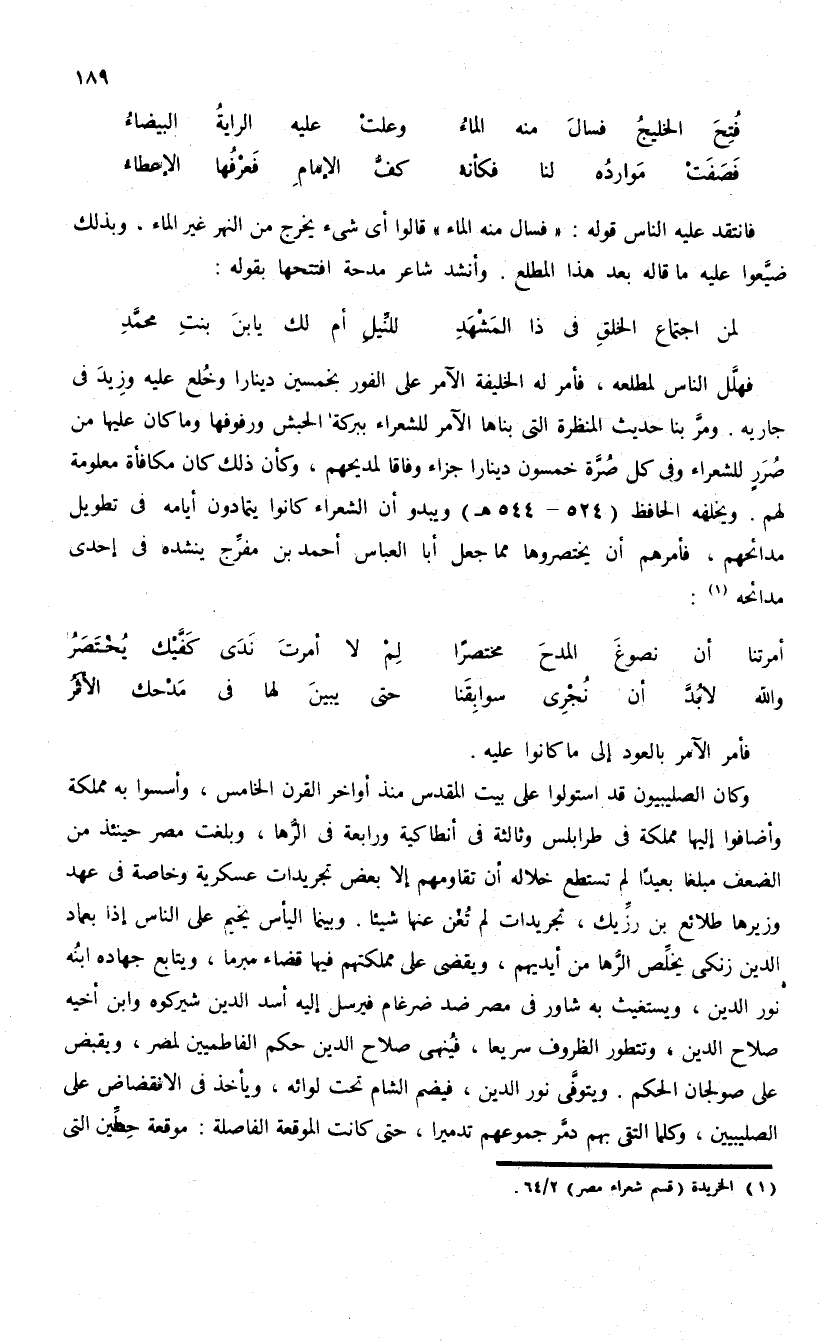 ١٨٩
فُتِحَ الخليجُ فسالَ منه الماءُ وعلتْ عليه الرايةُ البيضاءُ
فَصَفَتْ مَواردُه لنا فكأنه كفُّ الإمامِ فَعرْفُها الإعطاء
فانتقد عليه الناس قوله : « فسال منه الماء » قالوا أى شىء يخرج من النهر غير الماء . وبذلك
ضيَّعوا عليه ما قاله بعد هذا المطلع . وأنشد شاعر مدحة افتتحها بقوله :
لمن اجتماع الخلقِ فى ذا المَشْهَدِ للنِّيلِ أم لك يابنَ بنتِ محمَّدِ
فهلَّل الناس لمطلعه ، فأمر له الخليفة الآمر على الفور بخمسين دينارا وخُلع عليه وزِيدَ فى
جاريه . ومرَّ بنا حديث المنظرة التى بناها الآمر للشعراء ببركة الحبش ورفوفها وما كان عليها من
صُرَرٍ للشعراء وفى كل صُرَّة خمسون دينارا جزاء وفاقا لمديحهم ، وكأن ذلك كان مكافأة معلومة
لهم . ويخلفه الحافظ (٥٢٤ – ٥٤٤ هـ) ويبدو أن الشعراء كانوا يتمادون أيامه فى تطويل
مدائحهم ، فأمرهم أن يختصروها مما جعل أبا العباس أحمد بن مفرِّج ينشده فى إحدى
مدائحه (١) :
أمرتنا أن نصوغَ المدحَ مختصرًا لِمْ لا أمرتَ نَدَى كَفَّيْك يُخْتَصَرُ
والله لابُدَّ أن نُجْرِى سوابِقَنا حتى يبينَ لها فى مَدْحك الأثَرُ
فأمر الآمر بالعود إلى ما كانوا عليه .
وكان الصليبيون قد استولوا على بيت المقدس منذ أواخر القرن الخامس ، وأسسوا به مملكة
وأضافوا إليها مملكة فى طرابلس وثالثة فى أنطاكية ورابعة فى الرُّها ، وبلغت مصر حينئذ من
الضعف مبلغا بعيدًا لم تستطع خلاله أن تقاومهم إلا بعض تجريدات عسكرية وخاصة فى عهد
وزيرها طلائع بن رزِّيك ، تجريدات لم تُغْن عنها شيئا . وبينما اليأس يخيم على الناس إذا بعماد
الدين زنكى يخلِّص الرَّها من أيديهم ، ويقضى على مملكتهم فيها قضاء مبرما ، ويتابع جهاده ابنُه
نور الدين ، ويستغيث به شاور فى مصر ضد ضرغام فيرسل إليه أسد الدين شيركوه وابن أخيه
صلاح الدين ، وتتطور الظروف سريعا ، فيُنهى صلاح الدين حكم الفاطميين لمصر ، ويقبض
على صولجان الحكم . ويتوفَّى نور الدين ، فيضم الشام تحت لوائه ، ويأخذ فى الانقضاض على
الصليبيين ، وكلما التقى بهم دمَّر جموعهم تدميرا ، حتى كانت الموقعة الفاصلة : موقعة حِطِّين التى
(١) الخريدة (قسم شعراء مصر) ٦٤/٢.